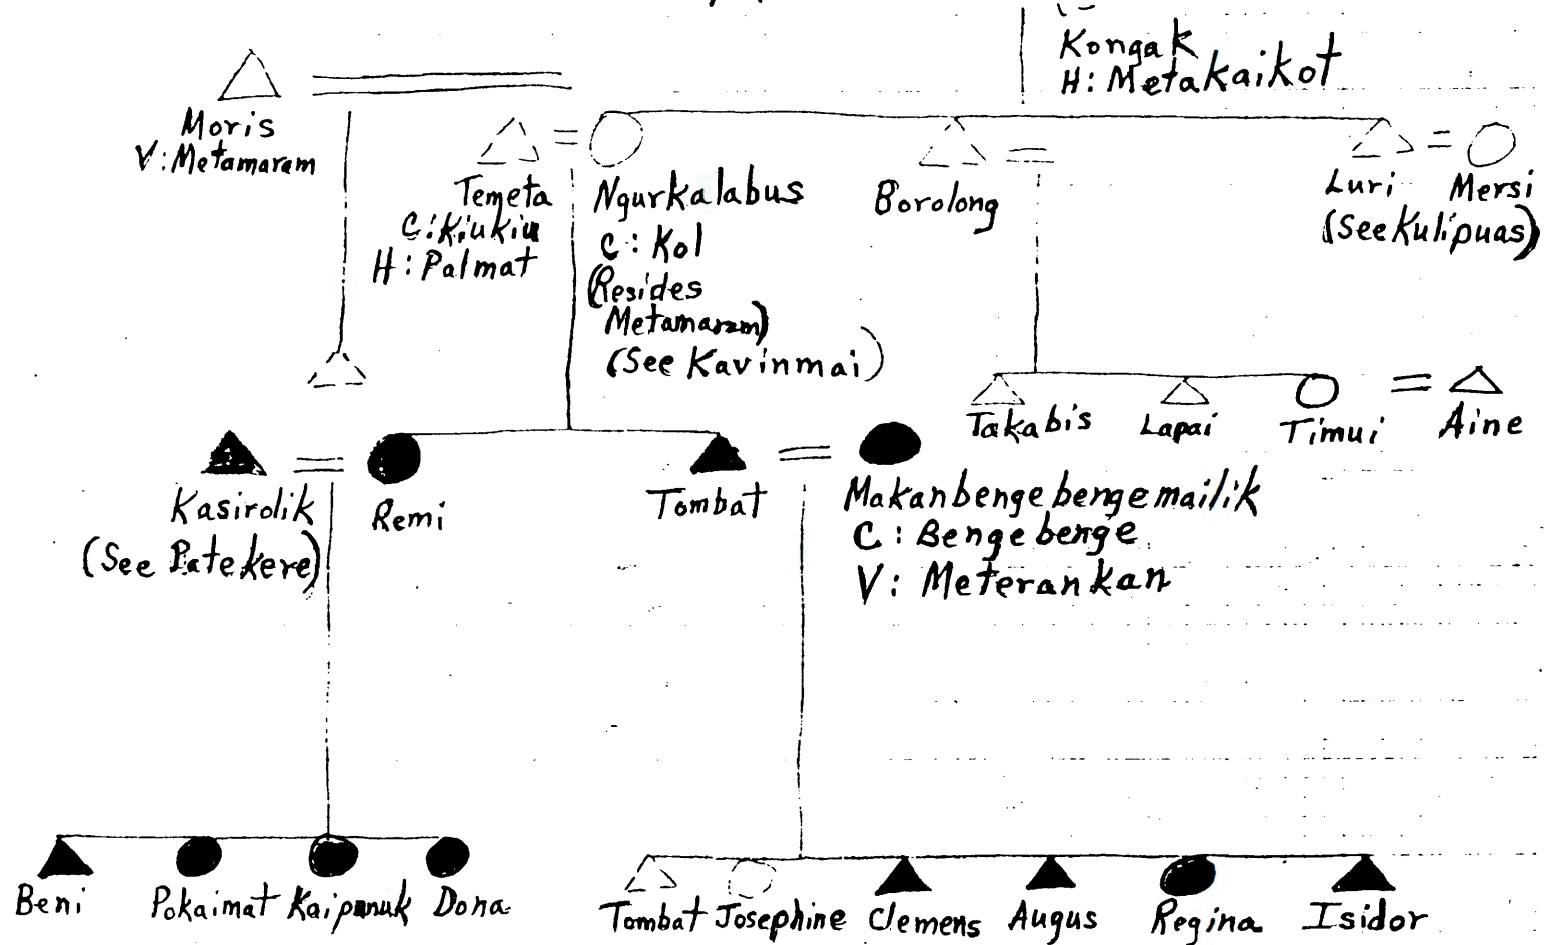 Kongak
H: Metakaikot
Moris
V: Metamaram
Temeta
C: Kiukiu
H: Palmat
Ngurkalabus
C: Kol
(Resides
Metamaram)
(See Kavinmai)
Borolong
Luri
Mersi
(See Kulipuas)
Takabis
Lapai
Timui
Aine
Kasirolik
(See Patekere)
Remi
Tombat
Makanbengebengemailik
C: Bengebenge
V: Meterankan
Beni
Pokaimat
Kaipunuk
Dona
Tombat
Josephine
Clemens
Augus
Regina
Isidor